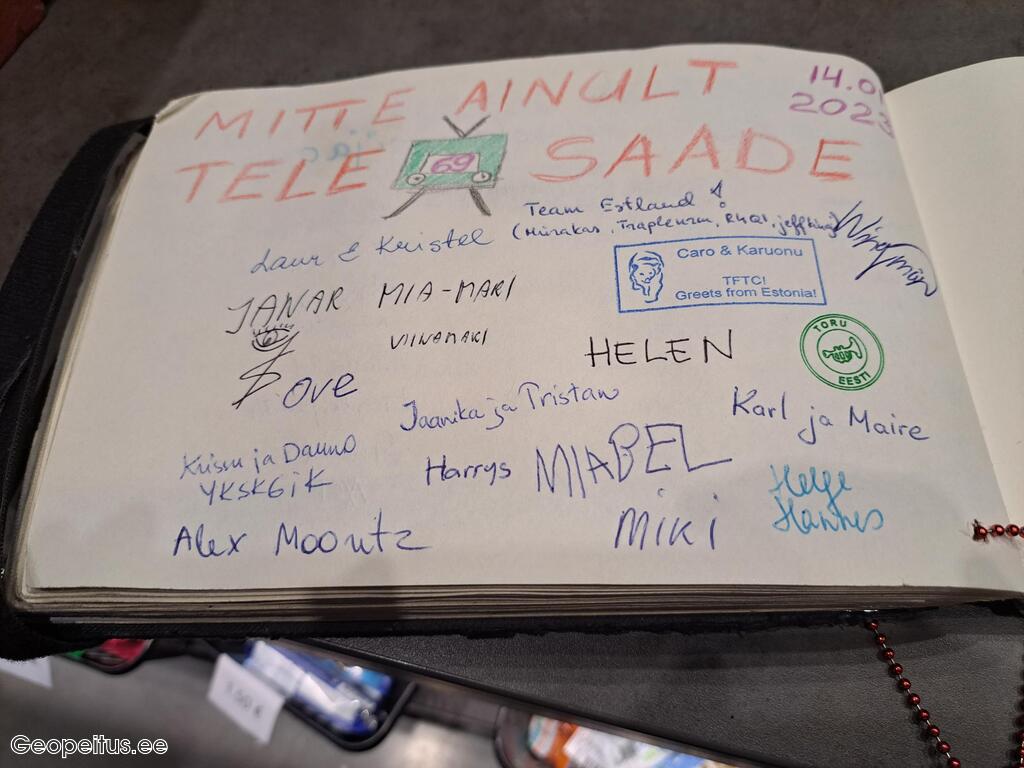 MITTE AINULT
14.01
2023
TELE 69 SAADE
Team Estland!
(Mürakas, Trapleurm, R4Q1, jeffking)
Wingman
Laur & Kristel
Caro & Karuonu
TFTC!
Greets from Estonia!
JANAR MIA-MARI
VIINAMARI
HELEN
TORU
EESTI
Love
Jaanika ja Tristan
Karl ja Maire
Krissu ja Dauno
YKSKÕIK
Harrys
MIABEL
Helge
Hannes
Alex Mooritz
MiKi
1.50 €
Geopeitus.ee